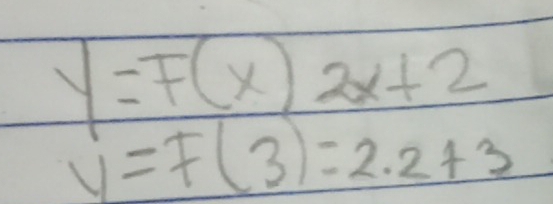 y=F(x) 2x+2
y=F(3)=2.2+3